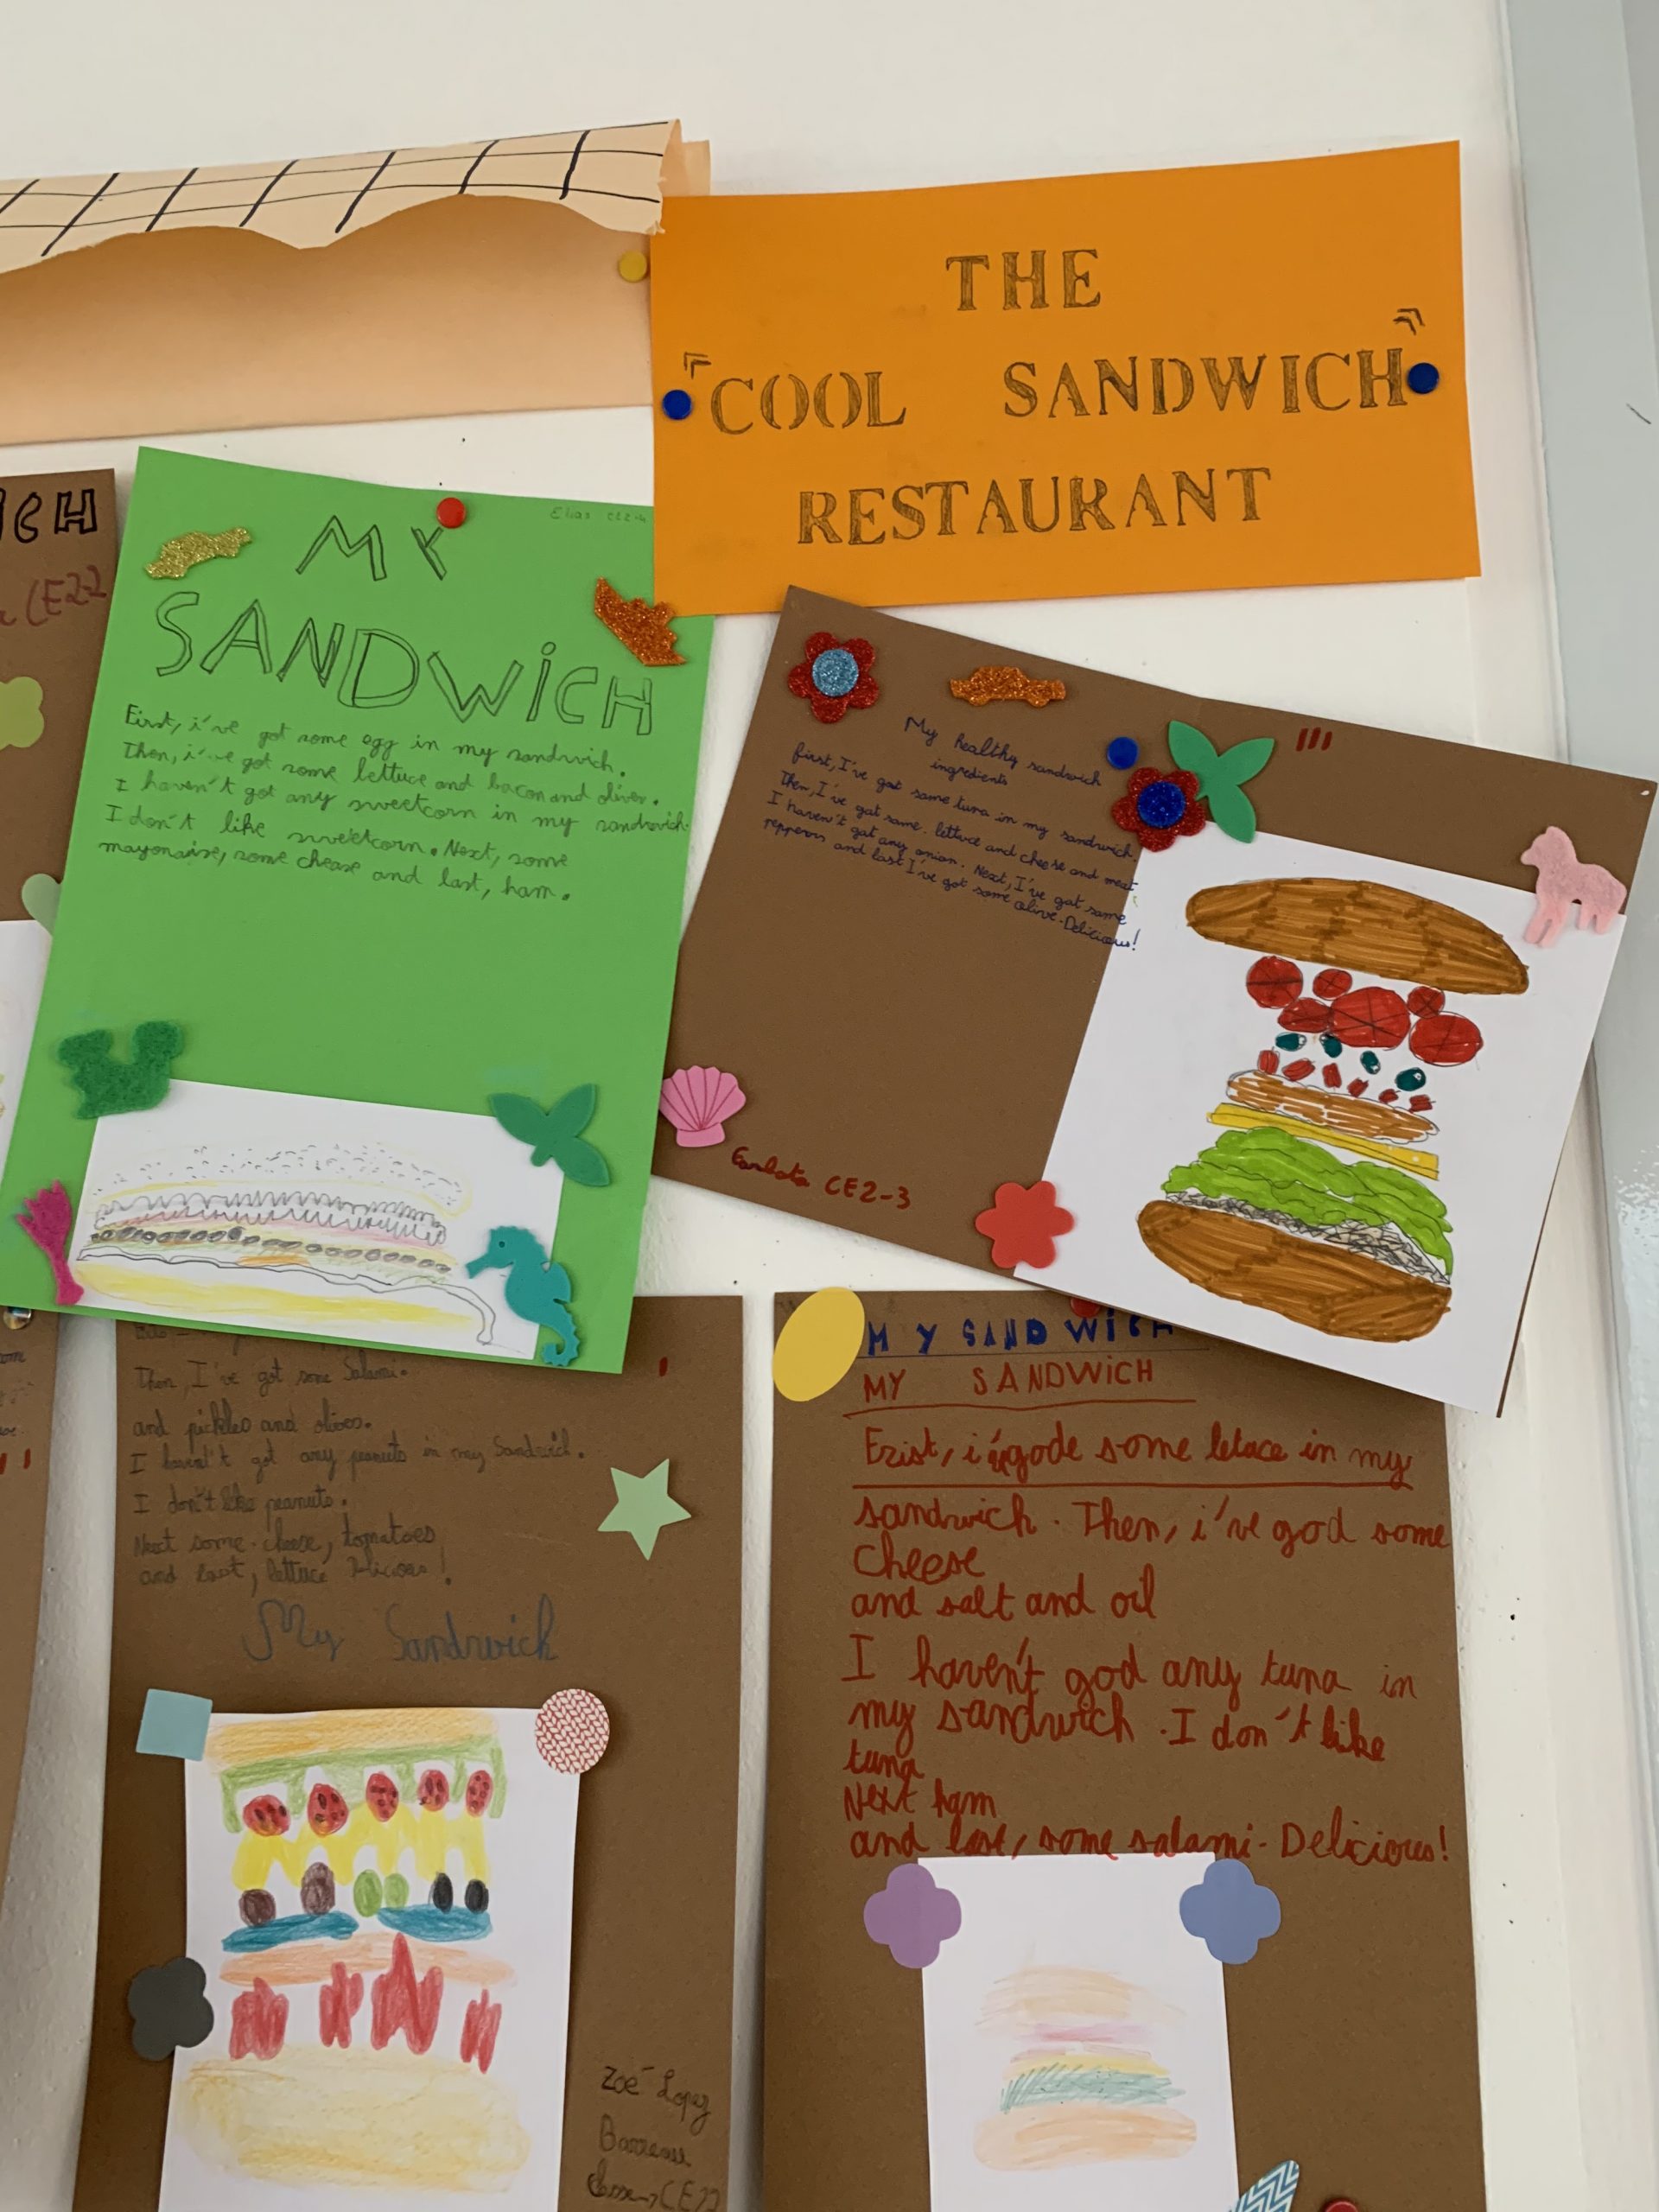 THE
"COOL SANDWICH"
RESTAURANT
CE2-2
Elias CE2-4
MY
SANDWiCH
First, i've got some egg in my sandwich.
Then, i've got some lettuce and bacon and olives.
I haven't got any sweetcorn in my sandwich.
I don't like sweetcorn. Next, some
mayonaise, some chease and last, ham.
My healthy sandwich
ingredients
first, I've got some tuna in my sandwich.
Then, I've gat same lettuce and cheese and meat
I haven't gat any onion. Next, I've gat same
peppers and last I've got some olive. Delicious!
CE2-3
Then, I've got some Salami.
and pickles and olives.
I haven't got any peanuts in my Sandwich.
I don't like peanuts.
Next some cheese, tomatoes
and last, lettuce Delicious!
My Sandwich
Zoé Lopez
Barreau
MY SANDWiCH
MY SANDWiCH
some letuce in my
sandwich. Then, i've god some
Cheese
and salt and oil
I haven't god any tuna in
my sandwich. I don't like
tuna
Next ham
and last, some salami. Delicious!